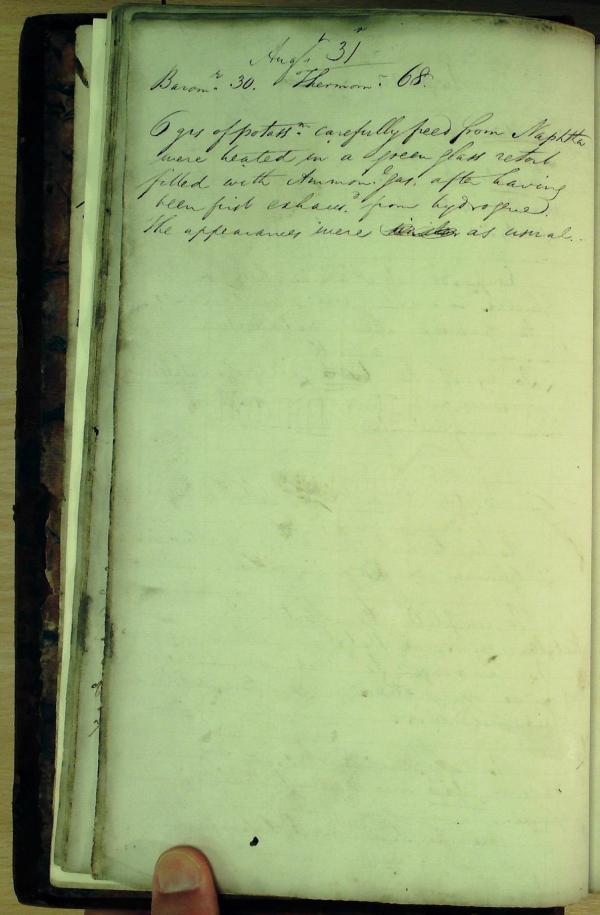 Augst 31st
Baromr. 30. Thermomr. 68.
6 grs of potassm. carefully freed from Naphtha
were heated in a green glass retort
filled with Ammonl. gas. after having
been first exhausd. from hydrogene.
The appearances were as usual.